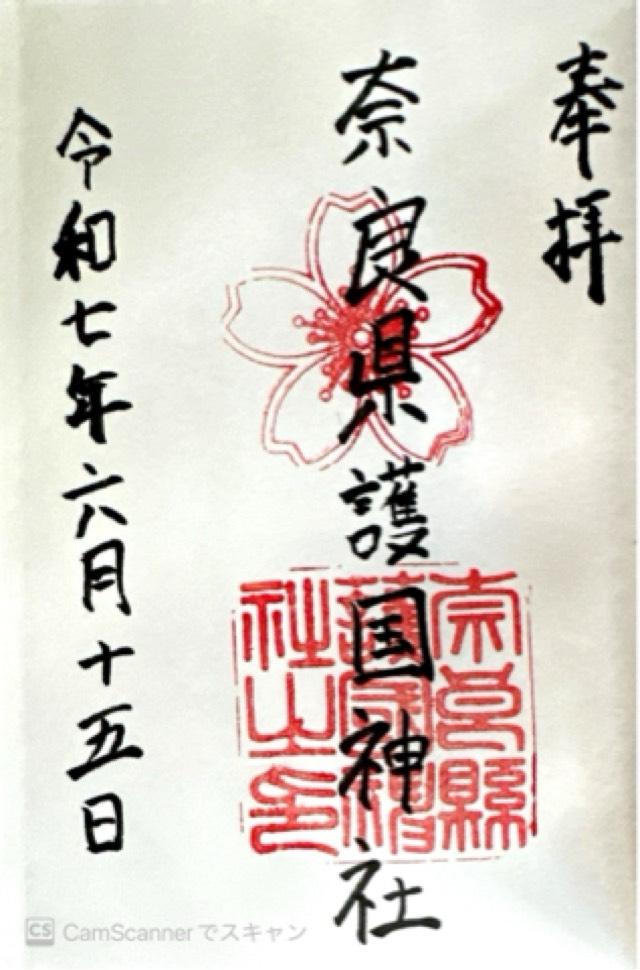 奉拝
奈良県護国神社
奈良縣
護國神
社之印
令和七年六月十五日
CS CamScannerでスキャン